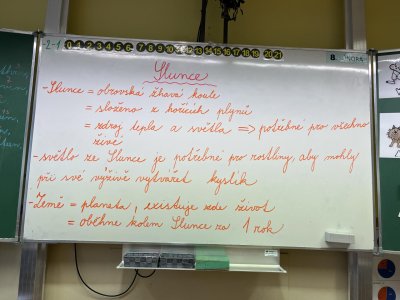 -2 -1 0 1 2 3 4 5 6 7 8 9 10 11 12 13 14 15 16 17 18 19 20 21
8. ÚNORA
Slunce
-Slunce = obrovská žhavá koule
= složeno z hořících plynů
= zdroj tepla a světla => potřebné pro všechno
živé
-světlo ze Slunce je potřebné pro rostliny, aby mohly
při své výživě vytvářet kyslík
-Země = planeta, existuje zde život
= oběhne kolem Slunce za 1 rok